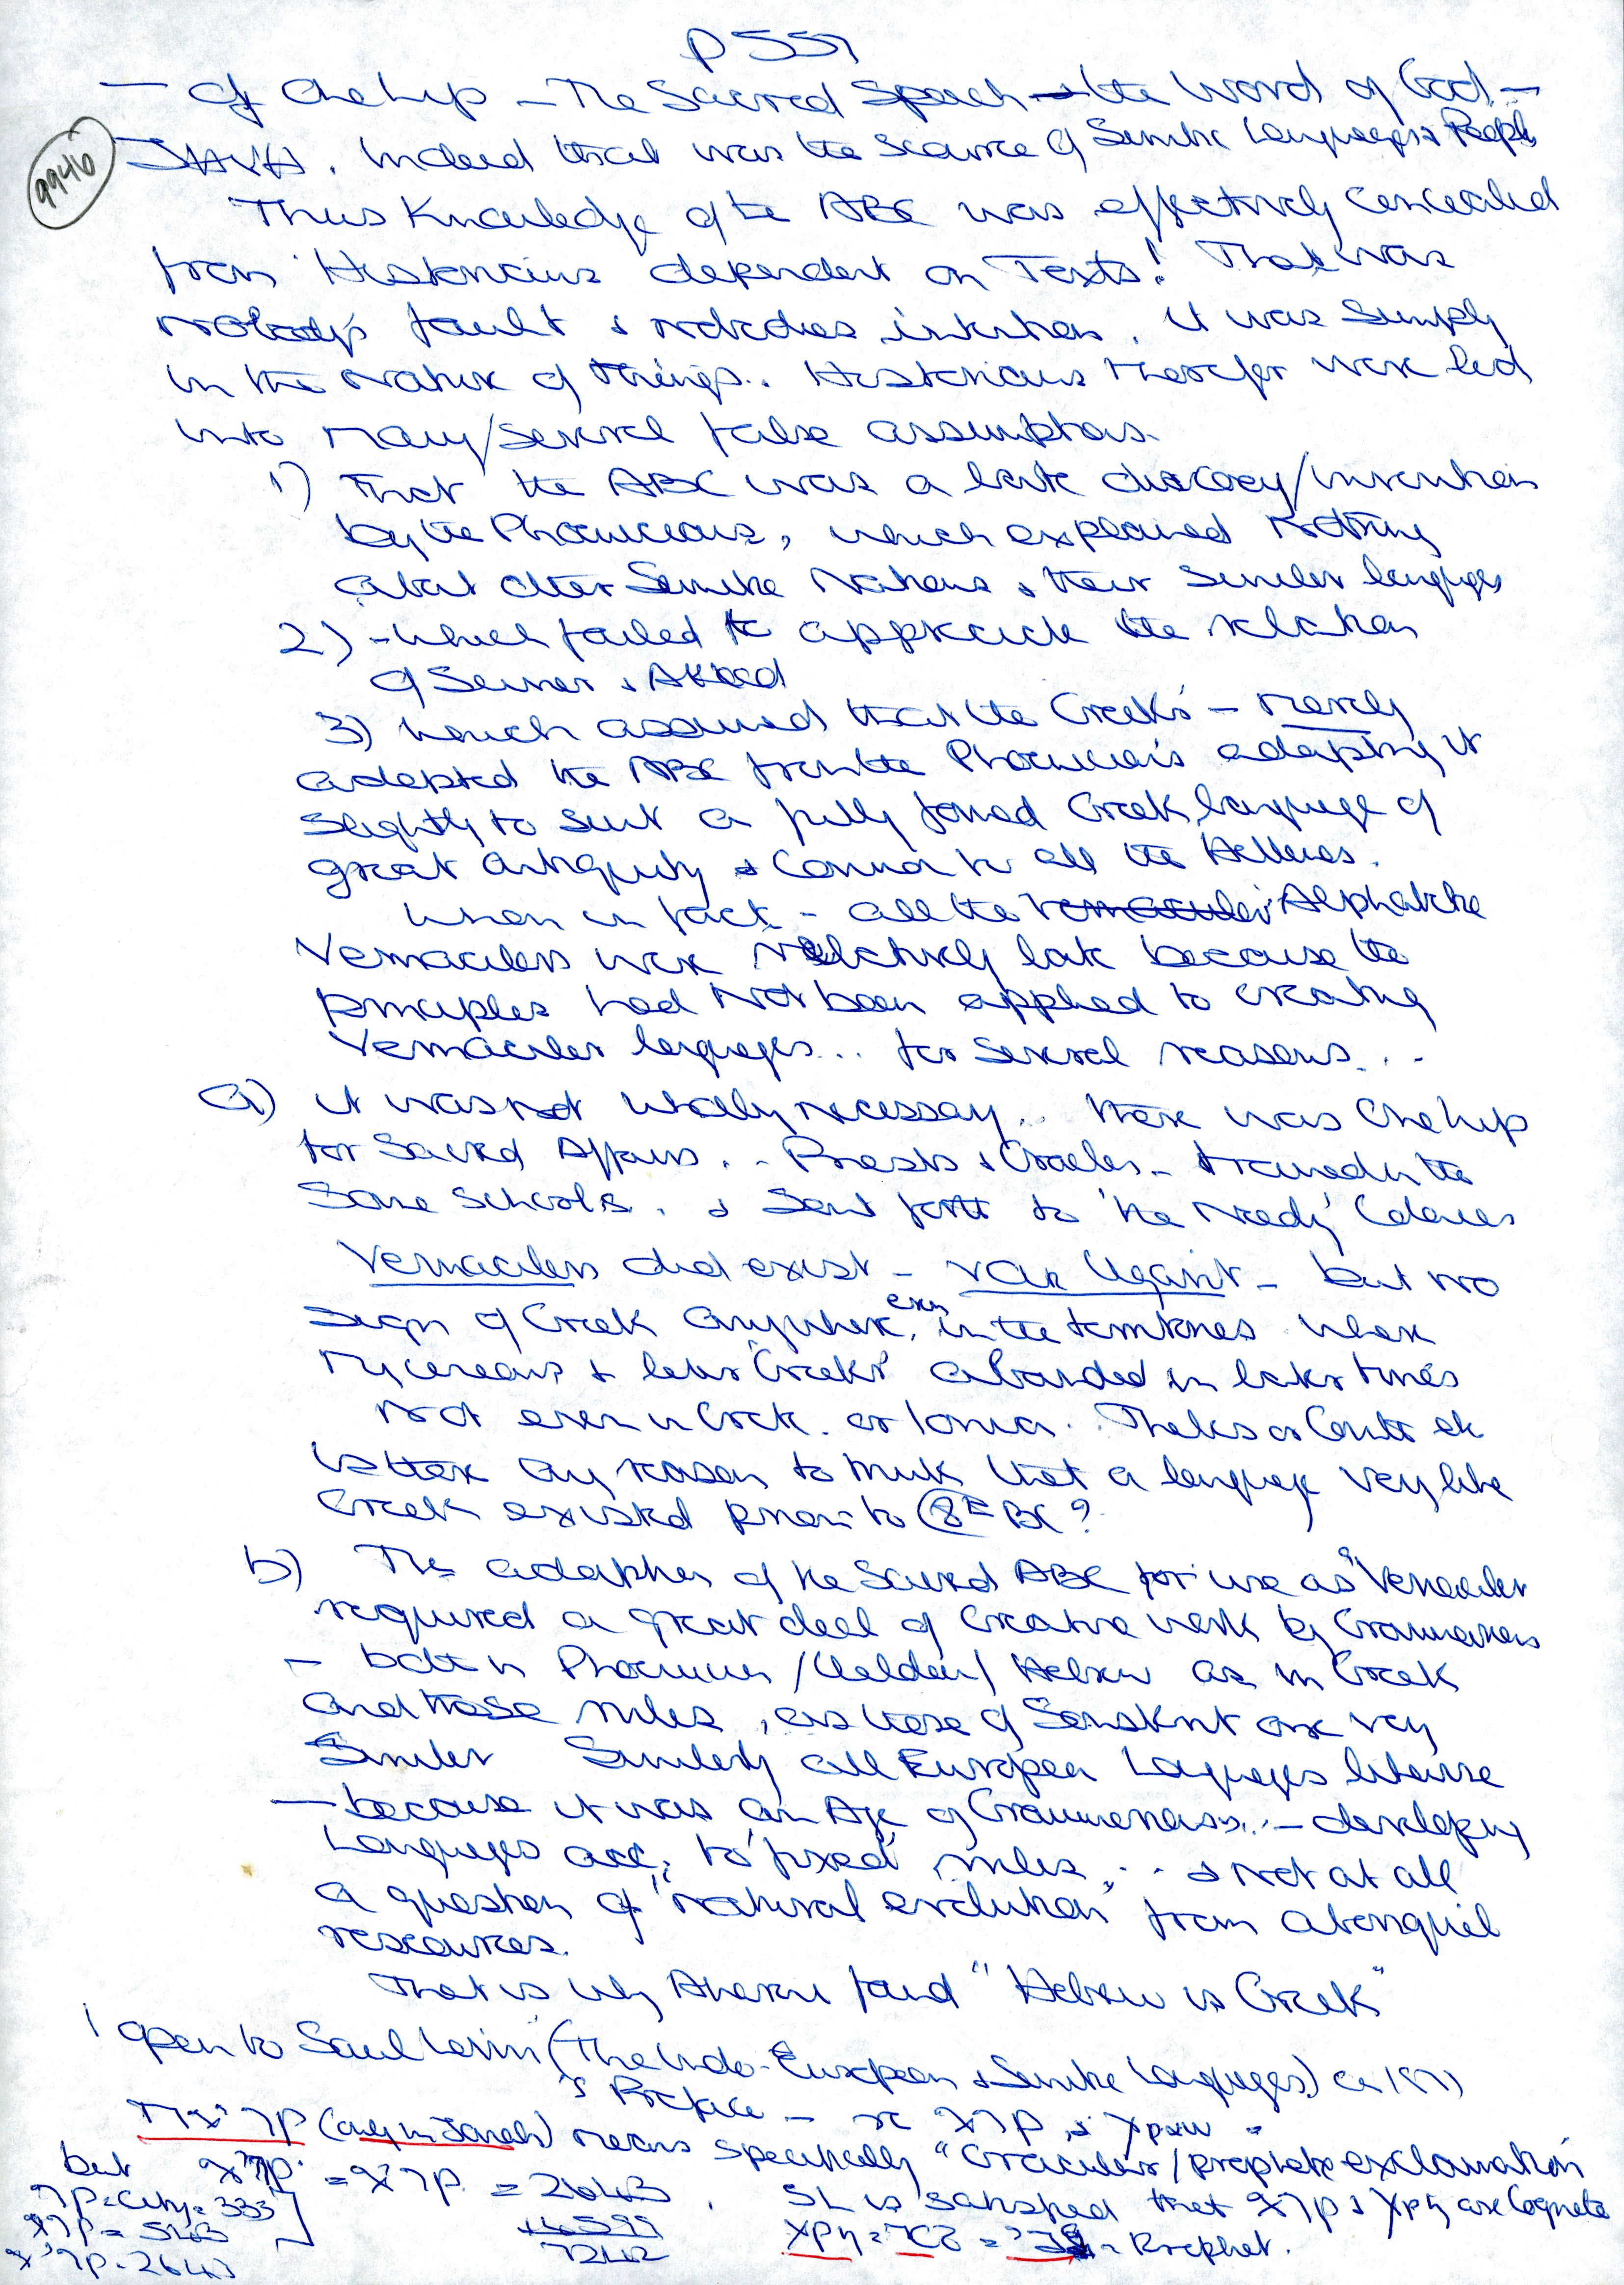 P 557
9946
— of One Lip – The Sacred Speach – the Word of God –
JAVA. Indeed that was the scource of Semitic Languages & People
Thus Knowledge of the ABC was effectively concealed
from Historians dependent on Texts! That was
Nobody's fault & nobodies intention. it was Simply
in the nature of things.. Historians therefor were led
into many/several false assumptions.
1) That the ABC was a late discovery/invention
by the Phoenicians, which explained nothing
about other Semitic Nations & their Similar languages
2) – which failed to appreciate the relation
of Sumer & Akkad
3) Which assumed that the Greeks – merely
adopted the ABC from the Phoenicians adapting it
Slightly to suit a fully formed Greek language of
great antiquity & Common to all the Hellenes.
When in fact – all the Vernacular Alphabetic
Vernaculars were relatively late because the
principles had not been applied to creating
Vernacular languages... for several reasons...
a) it was not wholly necessary.. there was One Lip
for Sacred Affairs.. – Priests & Oracles – trained in the
Same schools. & Sent forth to 'the Needy' Colonies
Vernaculars did exist – vide Ugarit – but no
Sign of Greek anywhere, even in the territories where
Myceneans & later 'Greeks' abounded in later times
Not even in Crete. or Ionia. Thebes or Corinth etc
Is there any reason to think that a language very like
Greek existed prior to 8th BC?
b) The adaption of the Sacred ABC for use as Vernacular
required a great deal of Creative work by Grammarians
– both in Phoenician / Chaldean / Hebrew as in Greek
And those rules, as those of Sanskrit are very
Similar Similarly all European Languages likewise
— because it was an Age of Grammarians... – developing
Languages acc. to 'fixed' rules... & not at all
a question of "natural evolution" from aboriginal
rescources.
That is why Aharni found "Hebrew is Greek"
I open to Saul Levin (The Indo-European & Semitic Languages) ca 1971
's Preface – re קרא & χραω –
(only in Jonah) means specifically "Oracular / prophetic exclamation
but = = 2643. SL is satisfied that קרא & χρη are Cognate
קר = City = 333
+4599
7242
= Prophet.